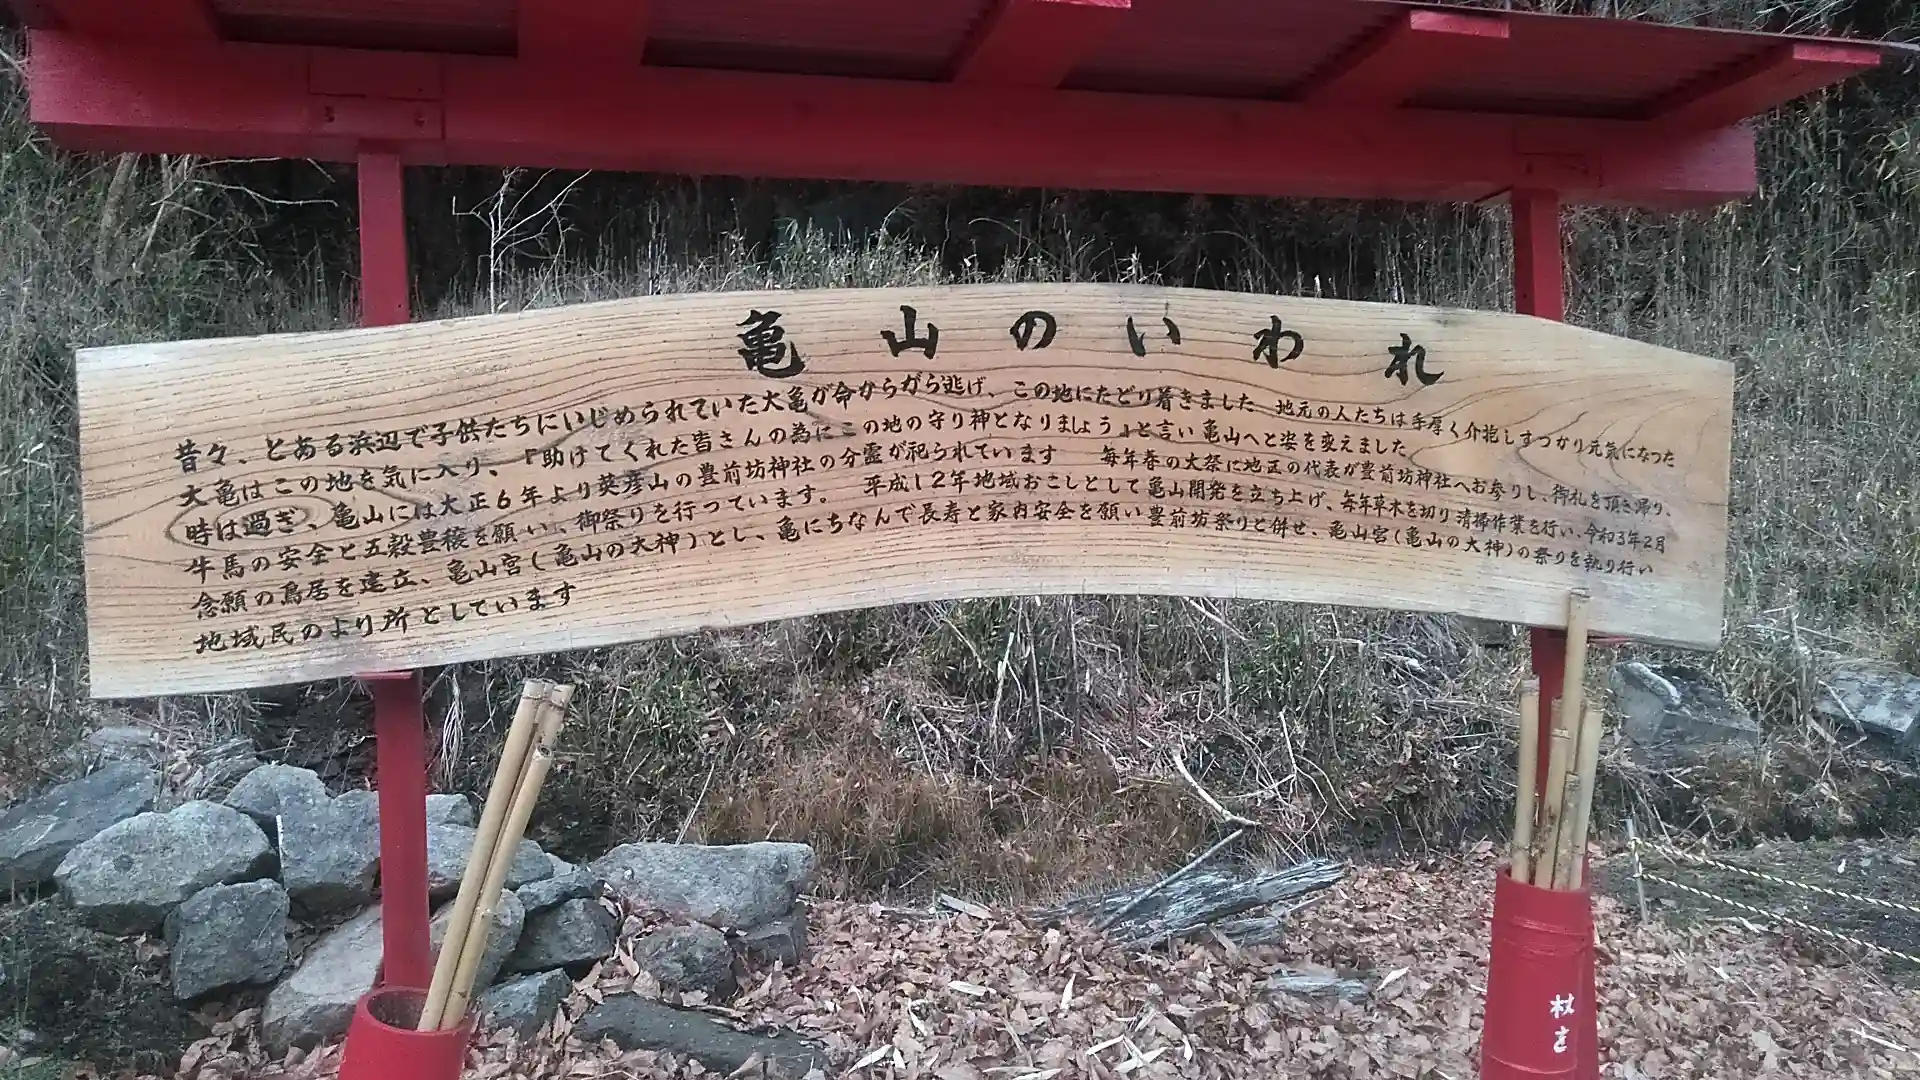 亀山のいわれ
昔々、とある浜辺で子供たちにいじめられていた大亀が命からがら逃げ、この地にたどり着きました 地元の人たちは手厚く介抱しすっかり元気になった
大亀はこの地を気に入り、『助けてくれた皆さんの為にこの地の守り神となりましょう』と言い亀山へと姿を変えました
時は過ぎ、亀山には大正6年より英彦山の豊前坊神社の分霊が祀られています 毎年春の大祭に地区の代表が豊前坊神社へお参りし、御札を頂き帰り、
牛馬の安全と五穀豊穣を願い、御祭りを行っています。 平成12年地域おこしとして亀山開発を立ち上げ、毎年草木を切り清掃作業を行い、令和3年2月
念願の鳥居を建立、亀山宮(亀山の大神)とし、亀にちなんで長寿と家内安全を願い豊前坊祭りと併せ、亀山宮(亀山の大神)の祭りを執り行い
地域民のより所としています
杖を